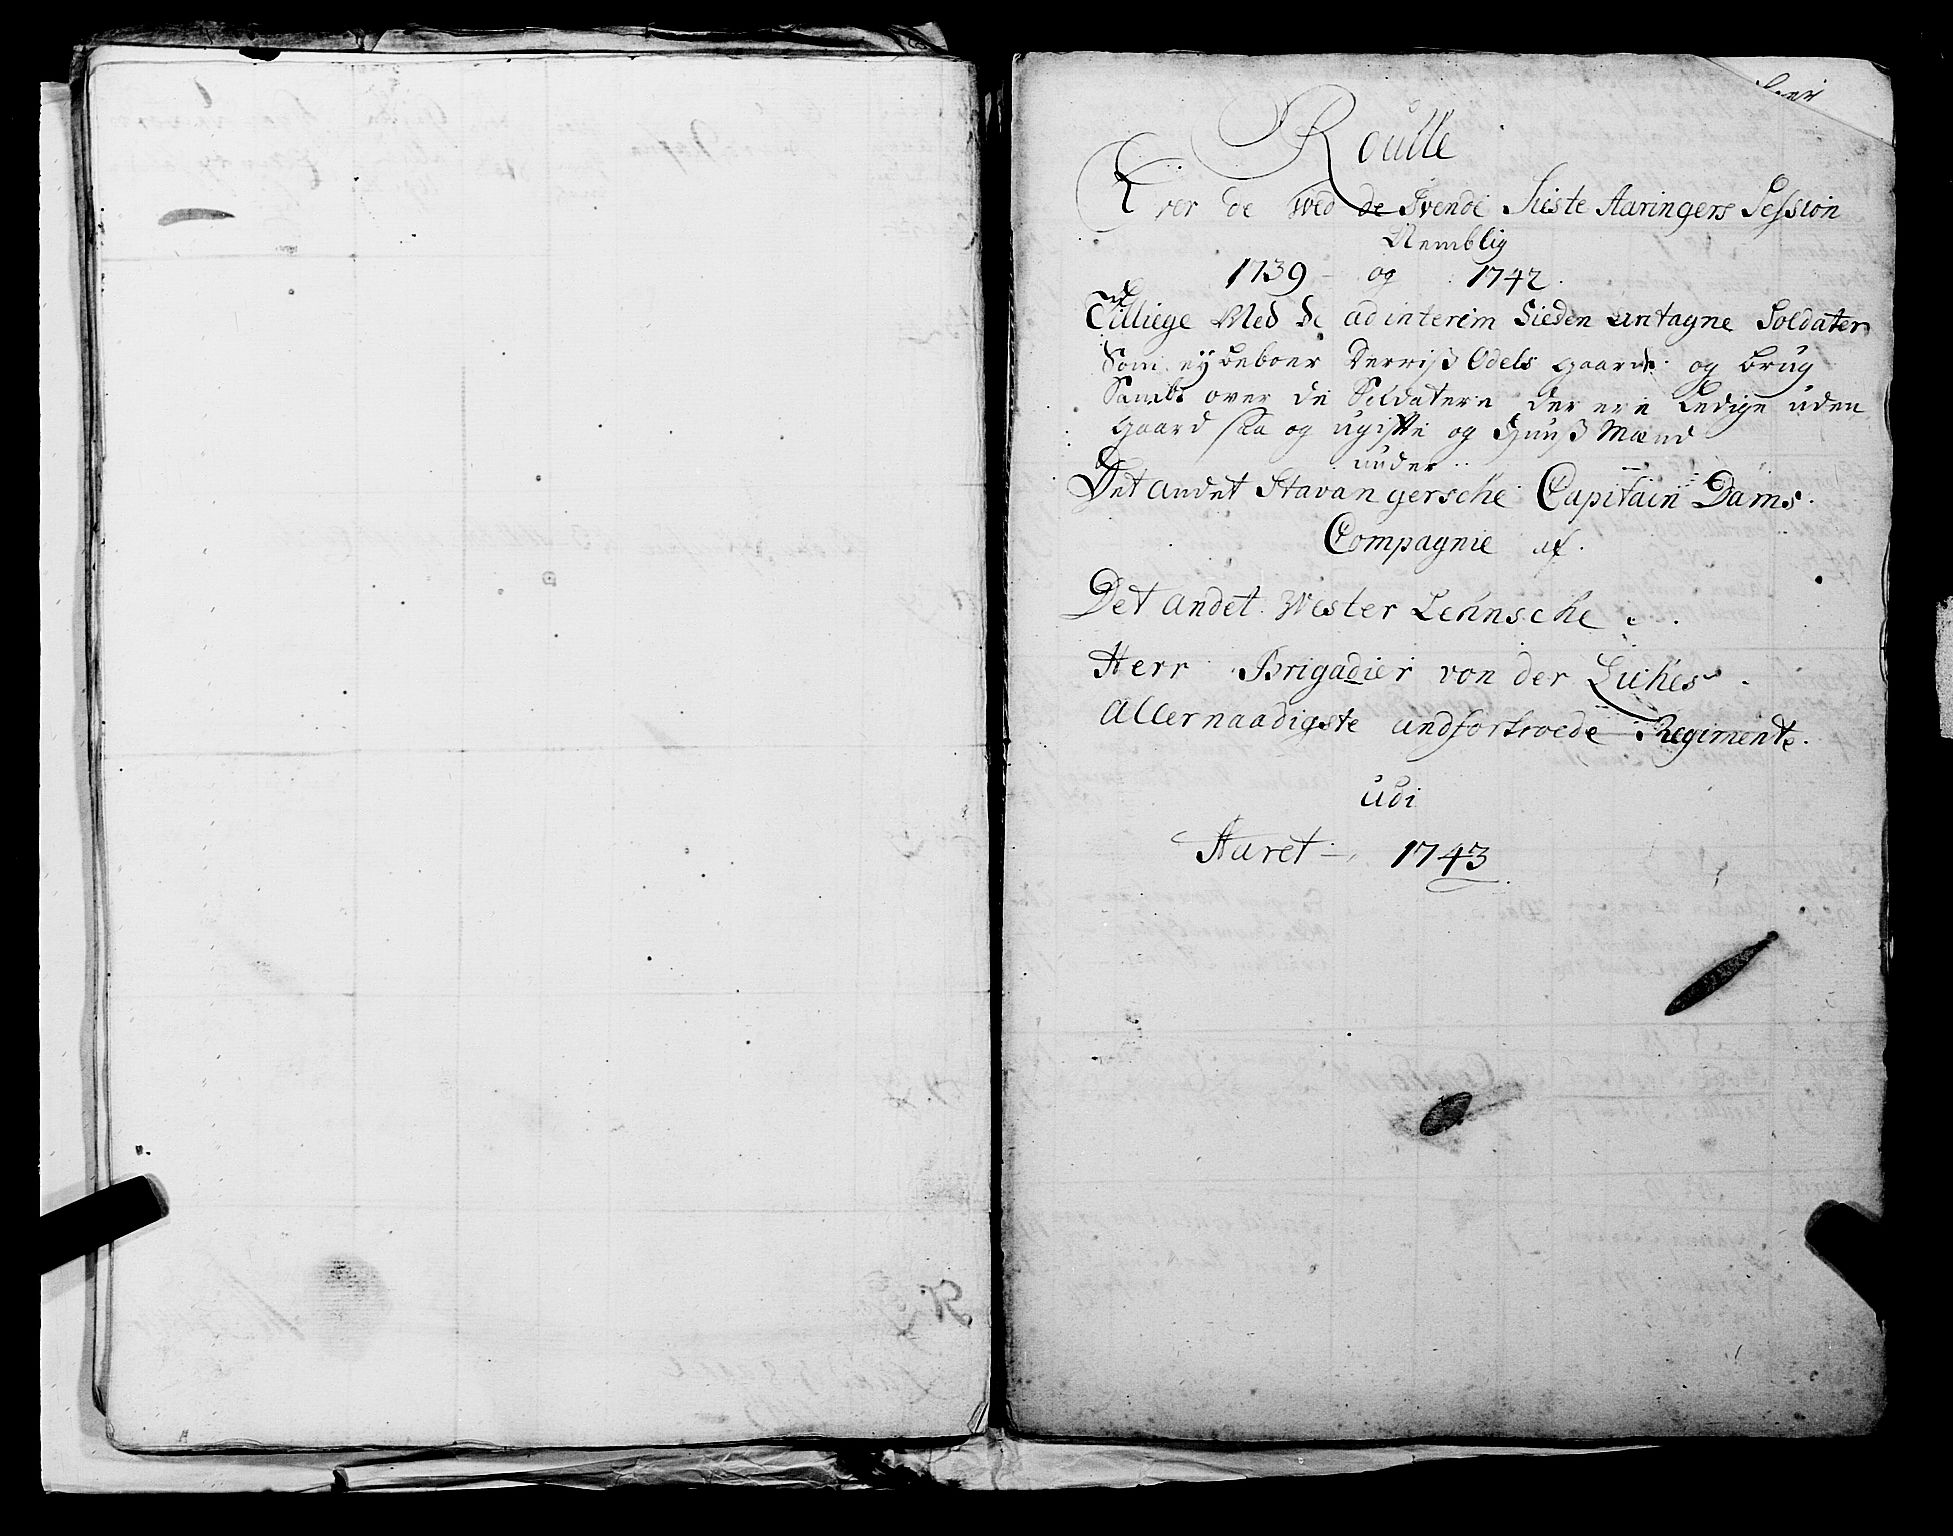 Roulle
Over de wed de Tvende Siste Aaringers Session
Nemblig
1739 - og 1742.
Tilliege Med de ad interim Sieden antagne Soldater
Som ey beboer Derriß Odels gaarde og brug
Sambt over de Soldatere der ere Ledige uden
gaard saa og ugifte og Huuß Mænd
under
Det andet Stavangersche Capitain Dams.
Compagnie af.
Det andet Wester Lehnsche
Herr Brigadier von der Lühes
Allernaadigste andfortroede Regimente.
udi
Aaret - 1743